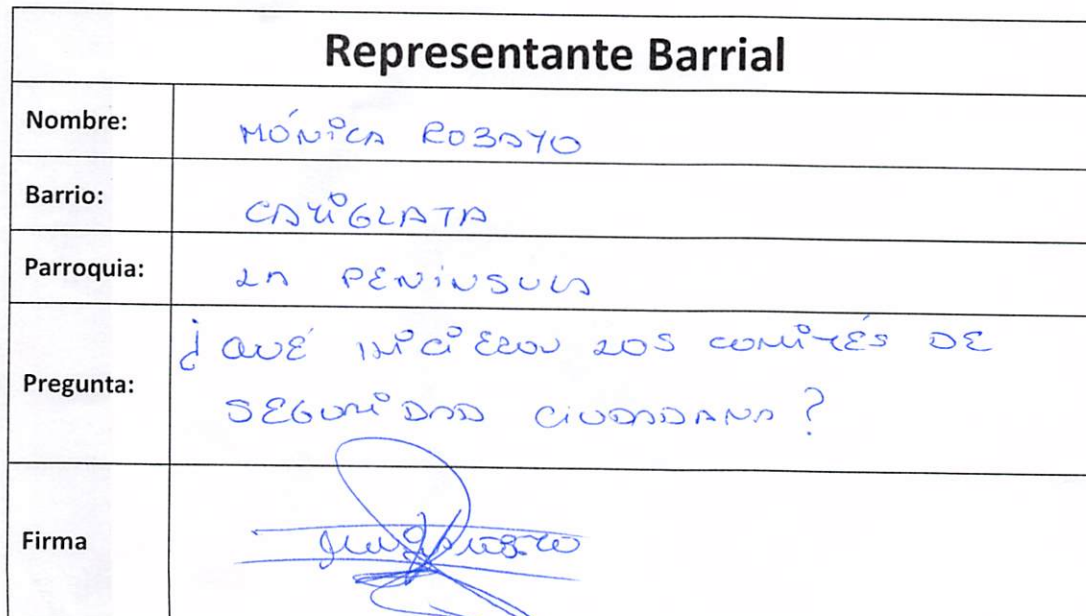 Representante Barrial
Nombre: MÓNICA ROBAYO
Barrio: CAÑIGLATA
Parroquia: LA PENÍNSULA
¿QUÉ HICIERON LOS COMITÉS DE
Pregunta:
SEGURIDAD CIUDADANA?
Firma